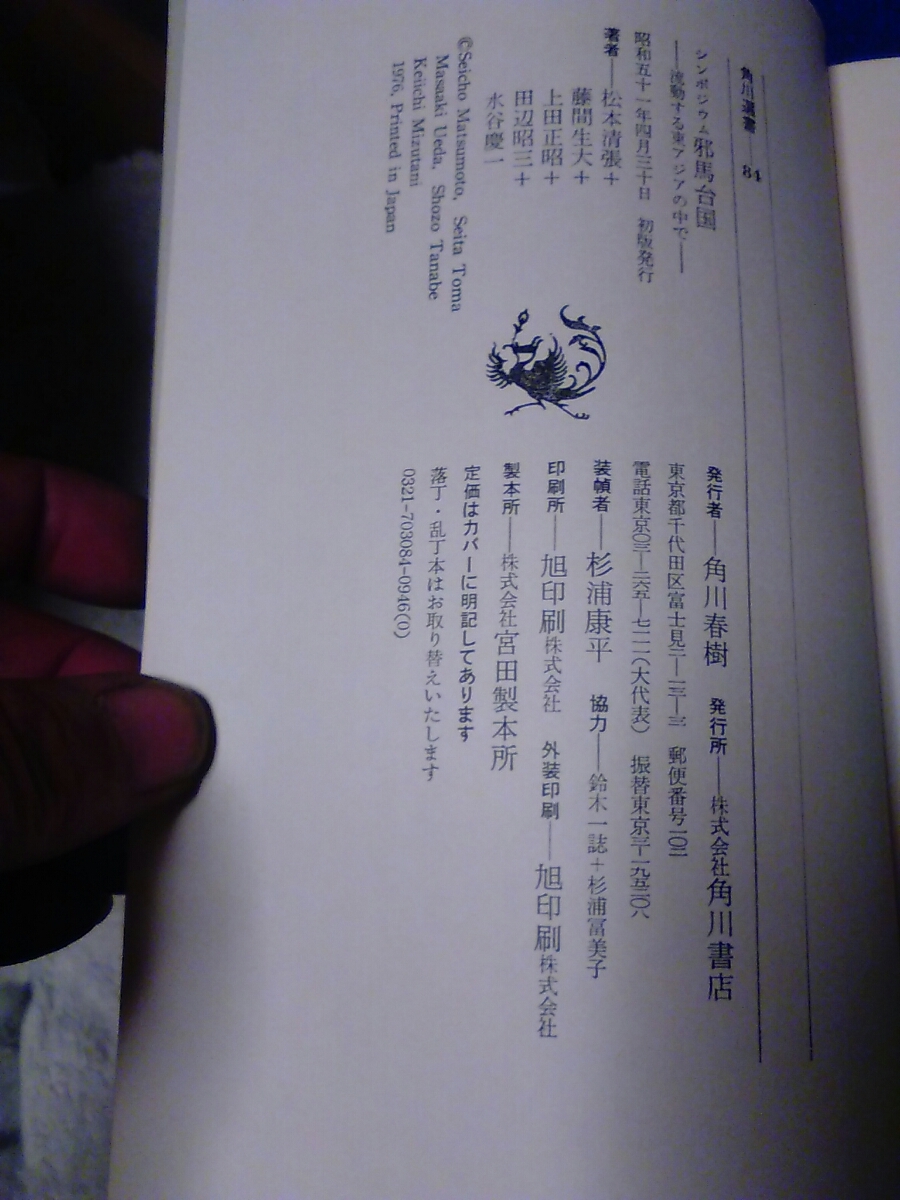 角川選書――84
シンポジウム 邪馬台国
――流動する東アジアの中で――
昭和五十一年四月三十日　初版発行
著者――松本清張＋
藤間生大＋
上田正昭＋
田辺昭三＋
水谷慶一
©Seicho Matsumoto, Seita Toma
Masaaki Ueda, Shozo Tanabe
Keiichi Mizutani
1976, Printed in Japan
発行者――角川春樹　発行所――株式会社角川書店
東京都千代田区富士見二―一三―三　郵便番号一〇二
電話東京〇三―二六五―七一一一（大代表）　振替東京三―一九五二〇八
装幀者――杉浦康平　協力――鈴木一誌＋杉浦冨美子
印刷所――旭印刷株式会社　外装印刷――旭印刷株式会社
製本所――株式会社宮田製本所
定価はカバーに明記してあります
落丁・乱丁本はお取り替えいたします
0321-703084-0946(0)